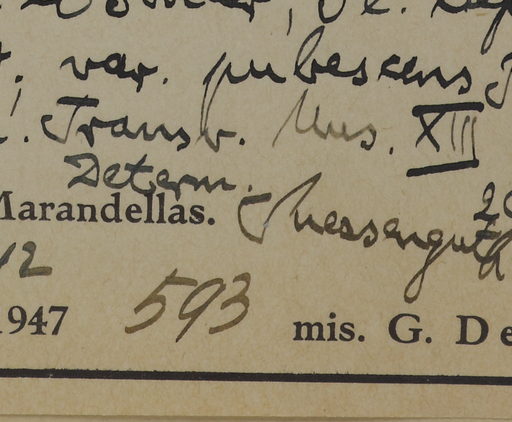 var. pubescens
Transv. Mus. XIII
Determ.
Marandellas. Suessenguth
12
1947 593 mis. G. De